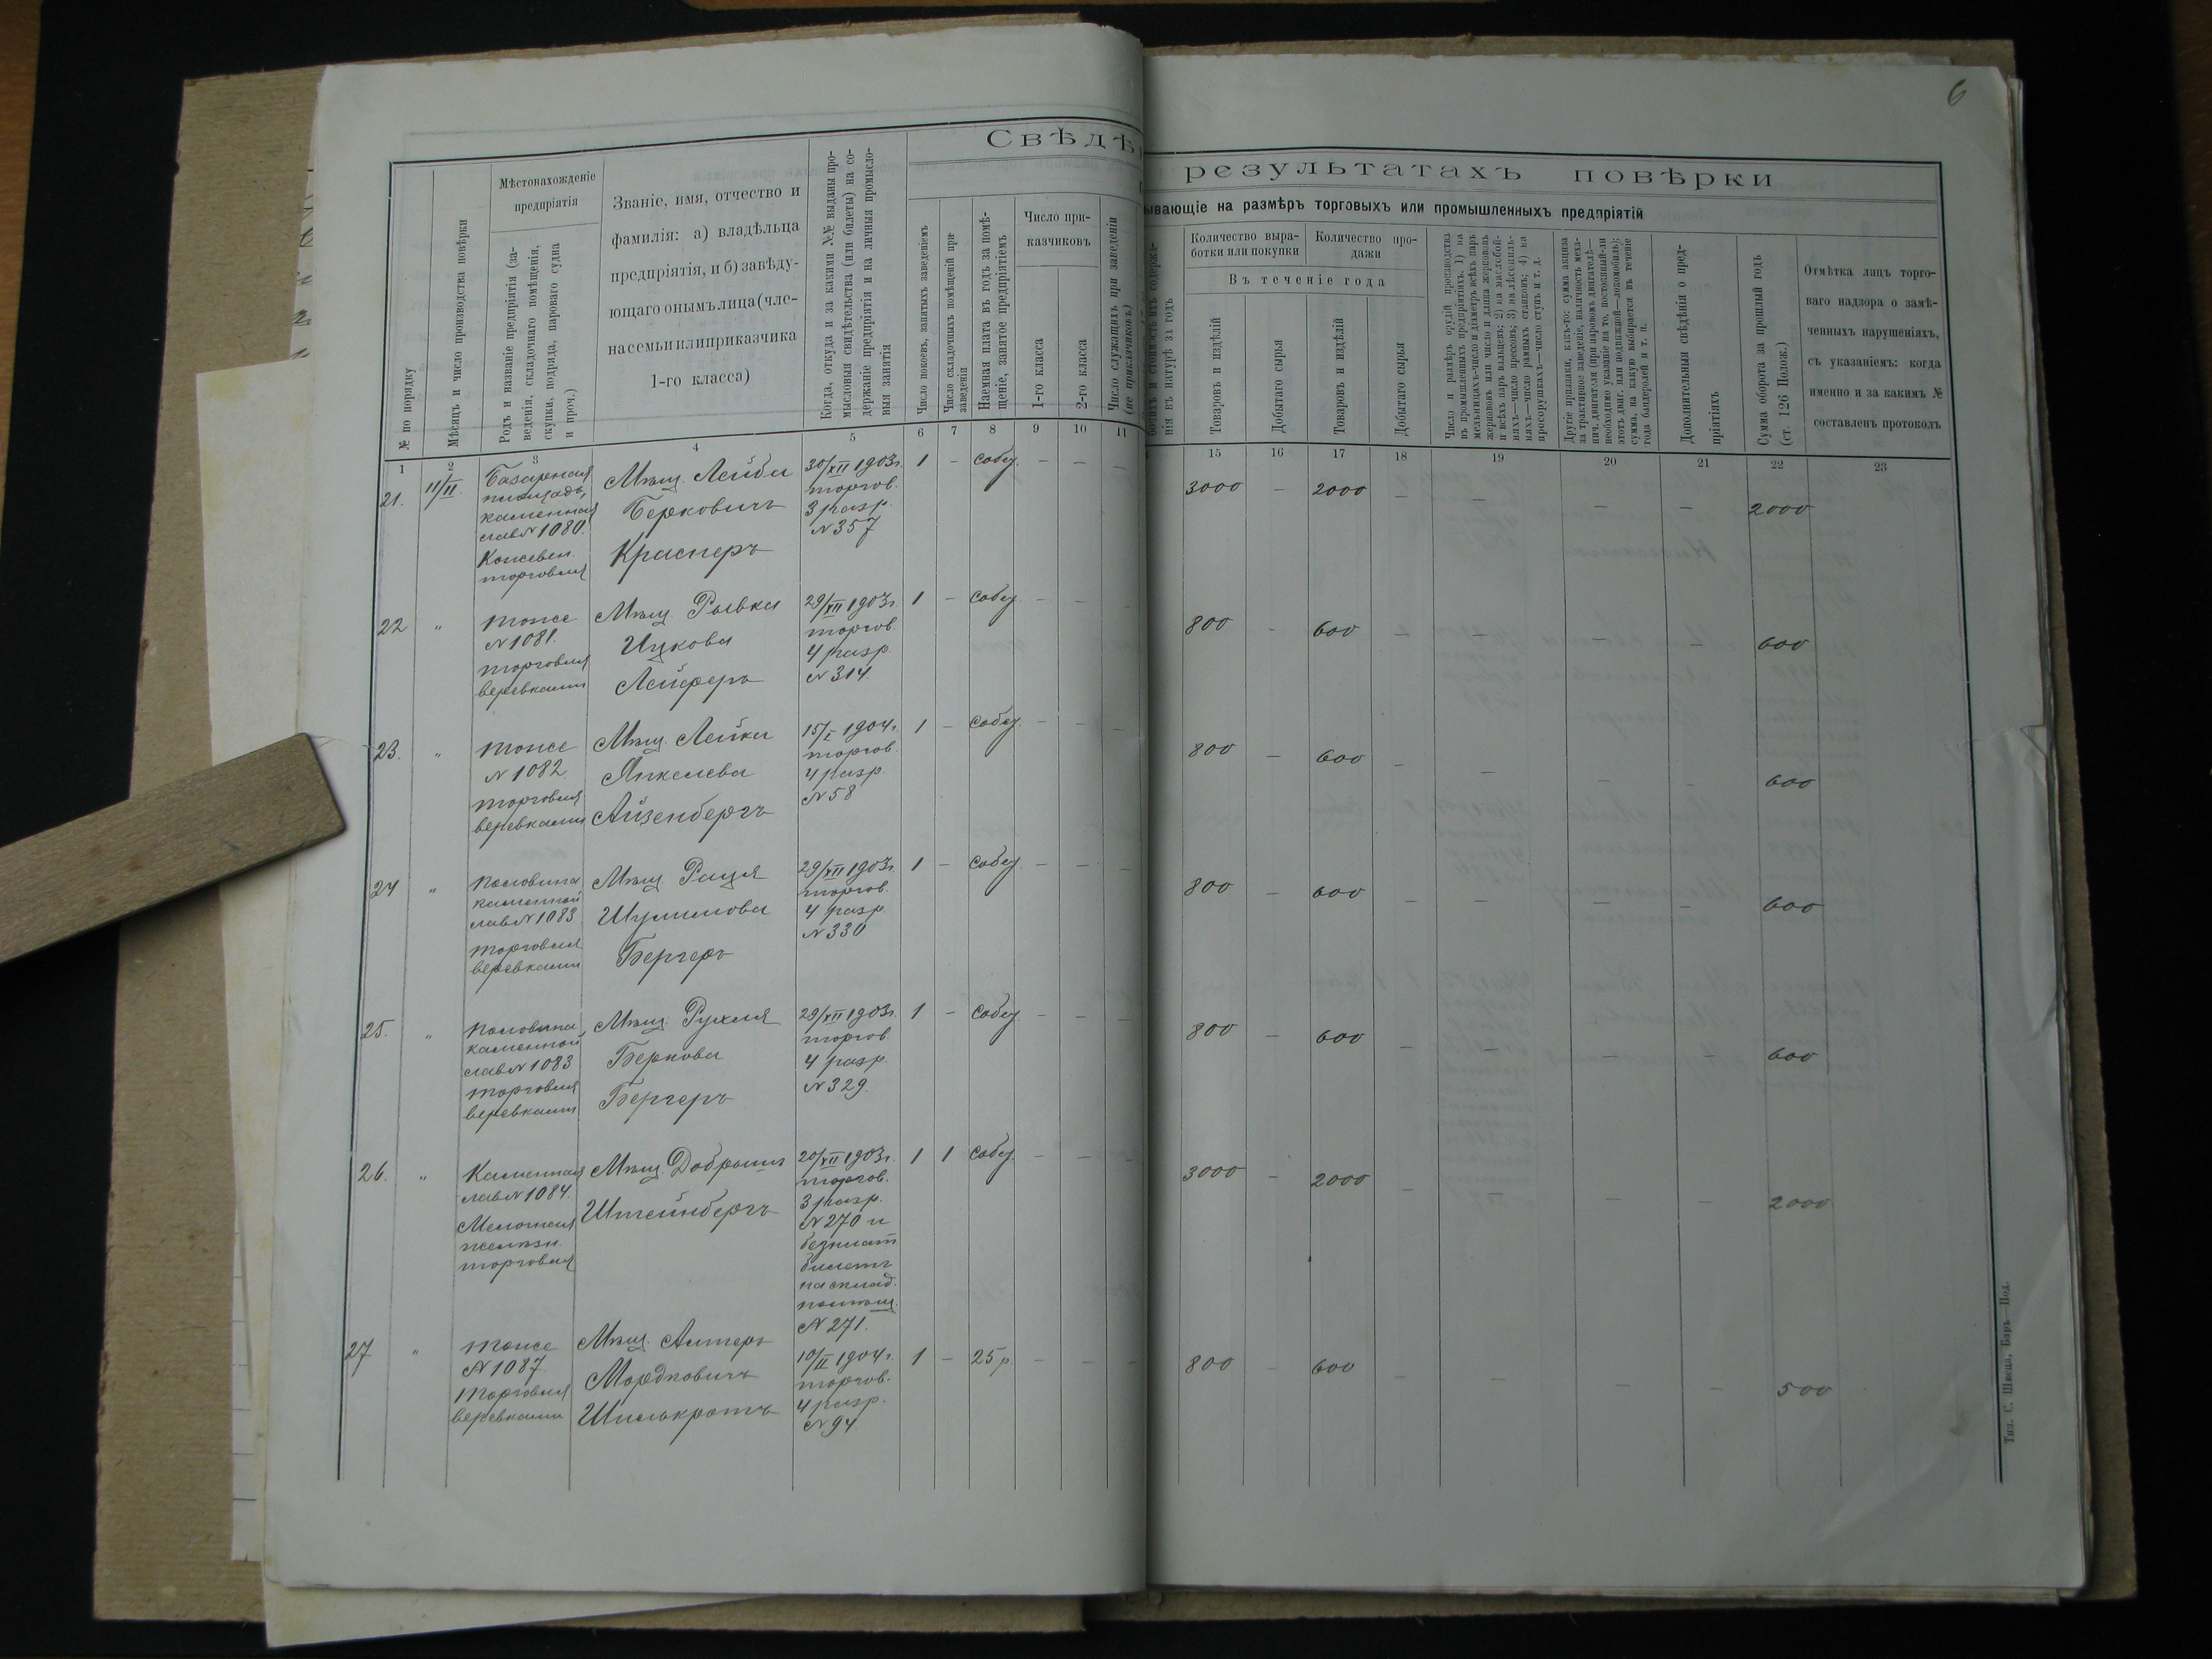 6
Свѣдѣ
результатахъ повѣрки
ывающіе на размѣръ торговыхъ или промышленныхъ предпріятій
№ по порядку
Мѣсяцъ и число производства повѣрки
Мѣстонахожденіе
предпріятія
Родъ и названіе предпріятія (за-
веденія, складочнаго помѣщенія,
скупки, подряда, парового судна
и проч.)
Званіе, имя, отчество и
фамилія: а) владѣльца
предпріятія, и б) завѣду-
ющаго онымъ лица (чле-
на семьи или приказчика
1-го класса)
Когда, откуда и за какими №№ выданы про-
мысловыя свидѣтельства (или билеты) на со-
держаніе предпріятія и на личныя промысло-
выя занятія
Число покоевъ, занятыхъ заведеніемъ
Число складочныхъ помѣщеній при
заведеніи
Наемная плата въ годъ за помѣ-
щеніе, занятое предпріятіемъ
Число при-
казчиковъ
1-го класса
2-го класса
Число служащихъ при заведеніи
(не приказчиковъ)
нія въ натурѣ за годъ
Количество выра-
ботки или покупки
Количество про-
дажи
Въ теченіе года
Товаровъ и издѣлій
Добытаго сырья
Товаровъ и издѣлій
Добытаго сырья
Число и размѣръ орудій производства
въ промышленныхъ предпріятіяхъ: 1) на
мельницахъ-число и діаметръ всѣхъ паръ
жернововъ или число и длина жернововъ
и всѣхъ паръ вальцевъ; 2) на маслобой-
няхъ—число прессовъ; 3) на лѣсопиль-
няхъ—число рамныхъ станковъ; 4) на
просорушкахъ—число ступъ и т. д.
Другіе признаки, какъ-то: сумма акциза
за трактирное заведеніе, наличность меха-
нич. двигателя (при паровомъ двигателѣ—
необходимо указаніе на то, постоянный-ли
этотъ двиг. или подвижной—локомобиль);
сумма, на какую выбирается въ теченіе
года бандеролей и т. п.
Дополнительныя свѣдѣнія о пред-
пріятіяхъ
Сумма оборота за прошлый годъ
(ст. 126 Полож.)
Отмѣтка лицъ торго-
ваго надзора о замѣ-
ченныхъ нарушеніяхъ,
съ указаніемъ: когда
именно и за какимъ №
составленъ протоколъ
1 2 3 4 5 6 7 8 9 10 11 15 16 17 18 19 20 21 22 23
21. 11/II Базарная Мѣщ. Лейба 30/XII 1903г. 1 – собст. – – 3000 – 2000 – – – – 2000
площадь, Берковичъ торгов.
каменная Краснеръ 3 разр.
лав№1080. №357
Кожевен.
торговля
22 " тоже Мѣщ. Рывка 29/XII 1903г. 1 – собст. – – – 800 – 600 – – – – 600
№1081. Ицкова торгов.
торговля Лейферъ 4 разр.
веревками №314.
23. " тоже Мѣщ. Лейка 15/I 1904г. 1 – собст. – – – 800 – 600 – – – – 600
№1082 Янкелева торгов.
торговля Айзенбергъ 4 разр.
веревками №58
24 " половина Мѣщ. Рация 29/XII 1903г. 1 – собст. – – – 800 – 600 – – – – 600
каменной Шулимова торгов.
лав№1083 Бергеръ 4 разр.
торговля №330
веревками
25. " половина Мѣщ. Рухля 29/XII 1903г. 1 – собст. – – – 800 – 600 – – – – 600
каменной Беркова торгов.
лав№1083 Бергеръ 4 разр.
торговля №329.
веревками
26. " Каменная Мѣщ. Добрыш 20/XII 1903г. 1 1 собст. – – – 3000 – 2000 – – – – 2000
лав№1084. Штейнбергъ торгов.
Мелочная 3 разр.
желѣзн. №270 и
торговля безплат
билетъ
на склад.
помѣщ.
№271.
27 " тоже Мѣщ. Алтеръ 10/II 1904г. 1 – 25 р. – – – 800 – 600 – – – – 500
№1087. Мордковичъ торгов.
торговля Шилькротъ 4 разр.
веревками №94.
Тип. С. Швеца, Баръ Под.